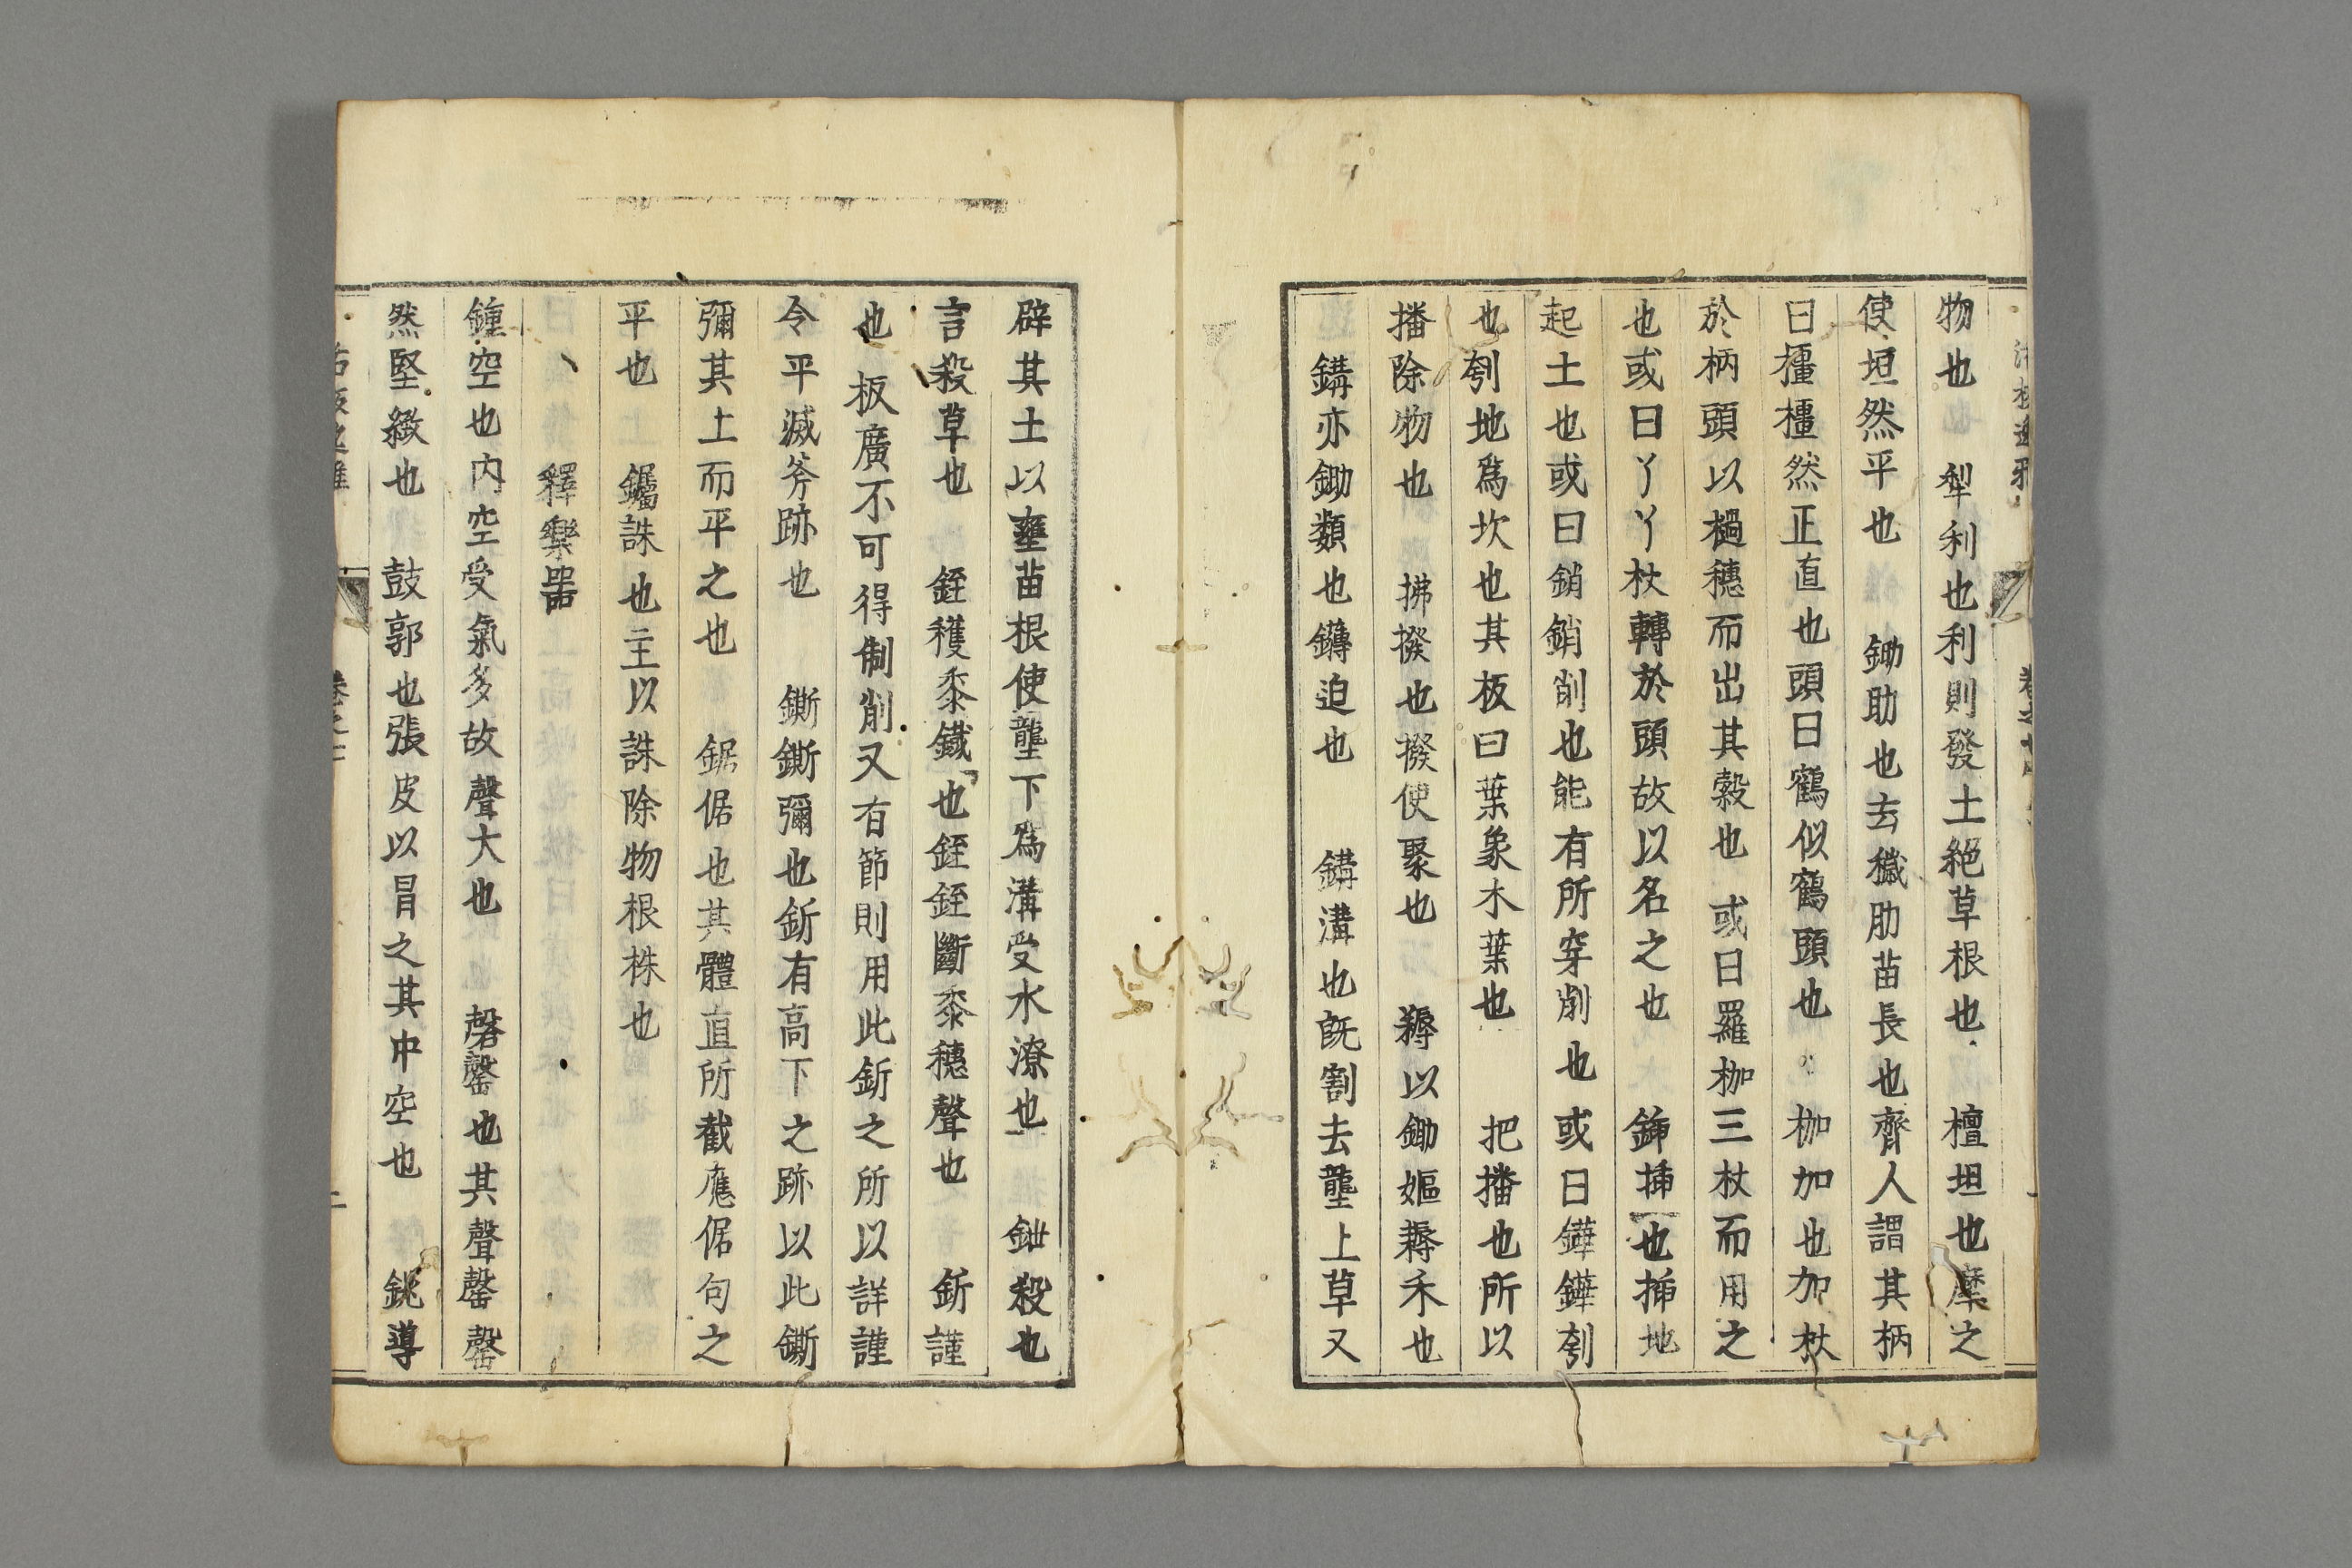 物也 犁利也利則發土絕草根也 檀坦也摩之
使坦然平也 鋤助也去穢肋苗長也齊人謂其柄
曰橿橿然正直也頭曰鶴似鶴頭也 枷加也加杖
於柄頭以檛穗而出其穀也 或曰羅枷三杖而用之
也或曰丫丫杖轉於頭故以名之也 鍤揷也揷地
起土也或曰銷銷削也能有所穿削也或曰鏵鏵刳
也刳地爲坎也其板曰葉象木葉也 把播也所以
播除物也 拂撥也撥使聚也 耨以鋤嫗耨禾也
鎛亦鋤類也鎛迫也 鐹溝也旣割去壟上草又
辟其土以壅苗根使壟下爲溝受水潦也 鈠殺也
言殺草也 銍穫黍鐵也銍銍斷黍穗聲也 釿謹
也 板廣不可得制削又有節則用此釿之所以詳謹
令平滅斧跡也 鐁鐁彌也釿有高下之跡以此鐁
彌其土而平之也 鋸倨也其體直所截應倨句之
平也 钃誅也主以誅除物根株也
釋樂噐
鍾空也內空受氣多故聲大也 磬罄也其聲罄罄
然堅緻也 鼓郭也張皮以冒之其中空也 銚導